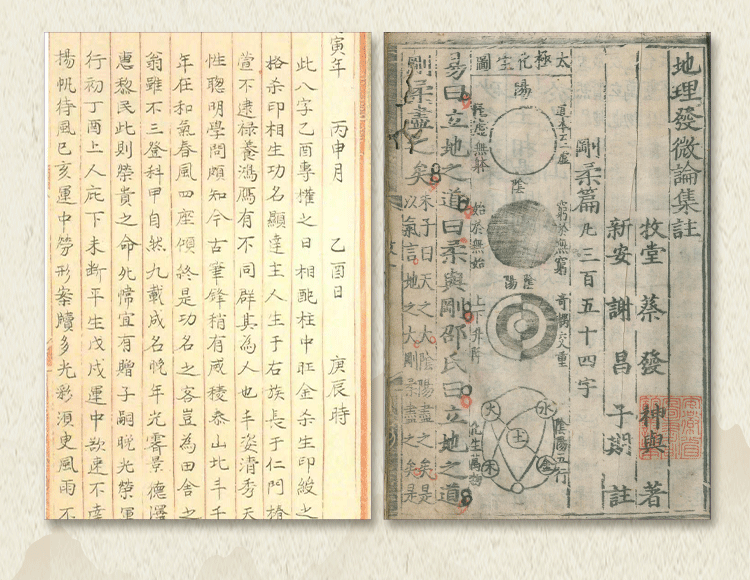 地理發微論集註
牧堂 蔡發 神與 著
新安 謝昌 子期 註
剛柔篇 凡三百五十四字
太極化生圖
陽
陰
窮於無窮
始於無始
陰陽
上下升降
陰陽五行
水
火
土
金
木
化生萬物
易曰立地之道曰柔與剛邵氏曰立地之道
剛柔盡之矣
朱子曰天之大陰陽盡之矣是
以氣言地之大剛柔盡之矣是
寅年 丙申月 乙酉日 庚辰時
此八字乙酉專權之日相配柱中旺金杀生印綬之
格杀印相生功名顯達主人生于右族長于仁門椿
萱不逮祿養鴻鴈有不同群其為人也丰姿清秀天
性聰明學問頗知今古筆鋒稍有威稜泰山北斗千
年在和氣春風四座傾終是功名之客豈為田舍之
翁雖不三登科甲自然九載成名晚年光霽景德澤
惠黎民此則榮貴之命宜有贈子嗣晚光榮運
行初丁酉上人庇下未斷平生戊戌運中欲速不達
揚帆待風己亥運中勞形案牘多光彩須更風雨不